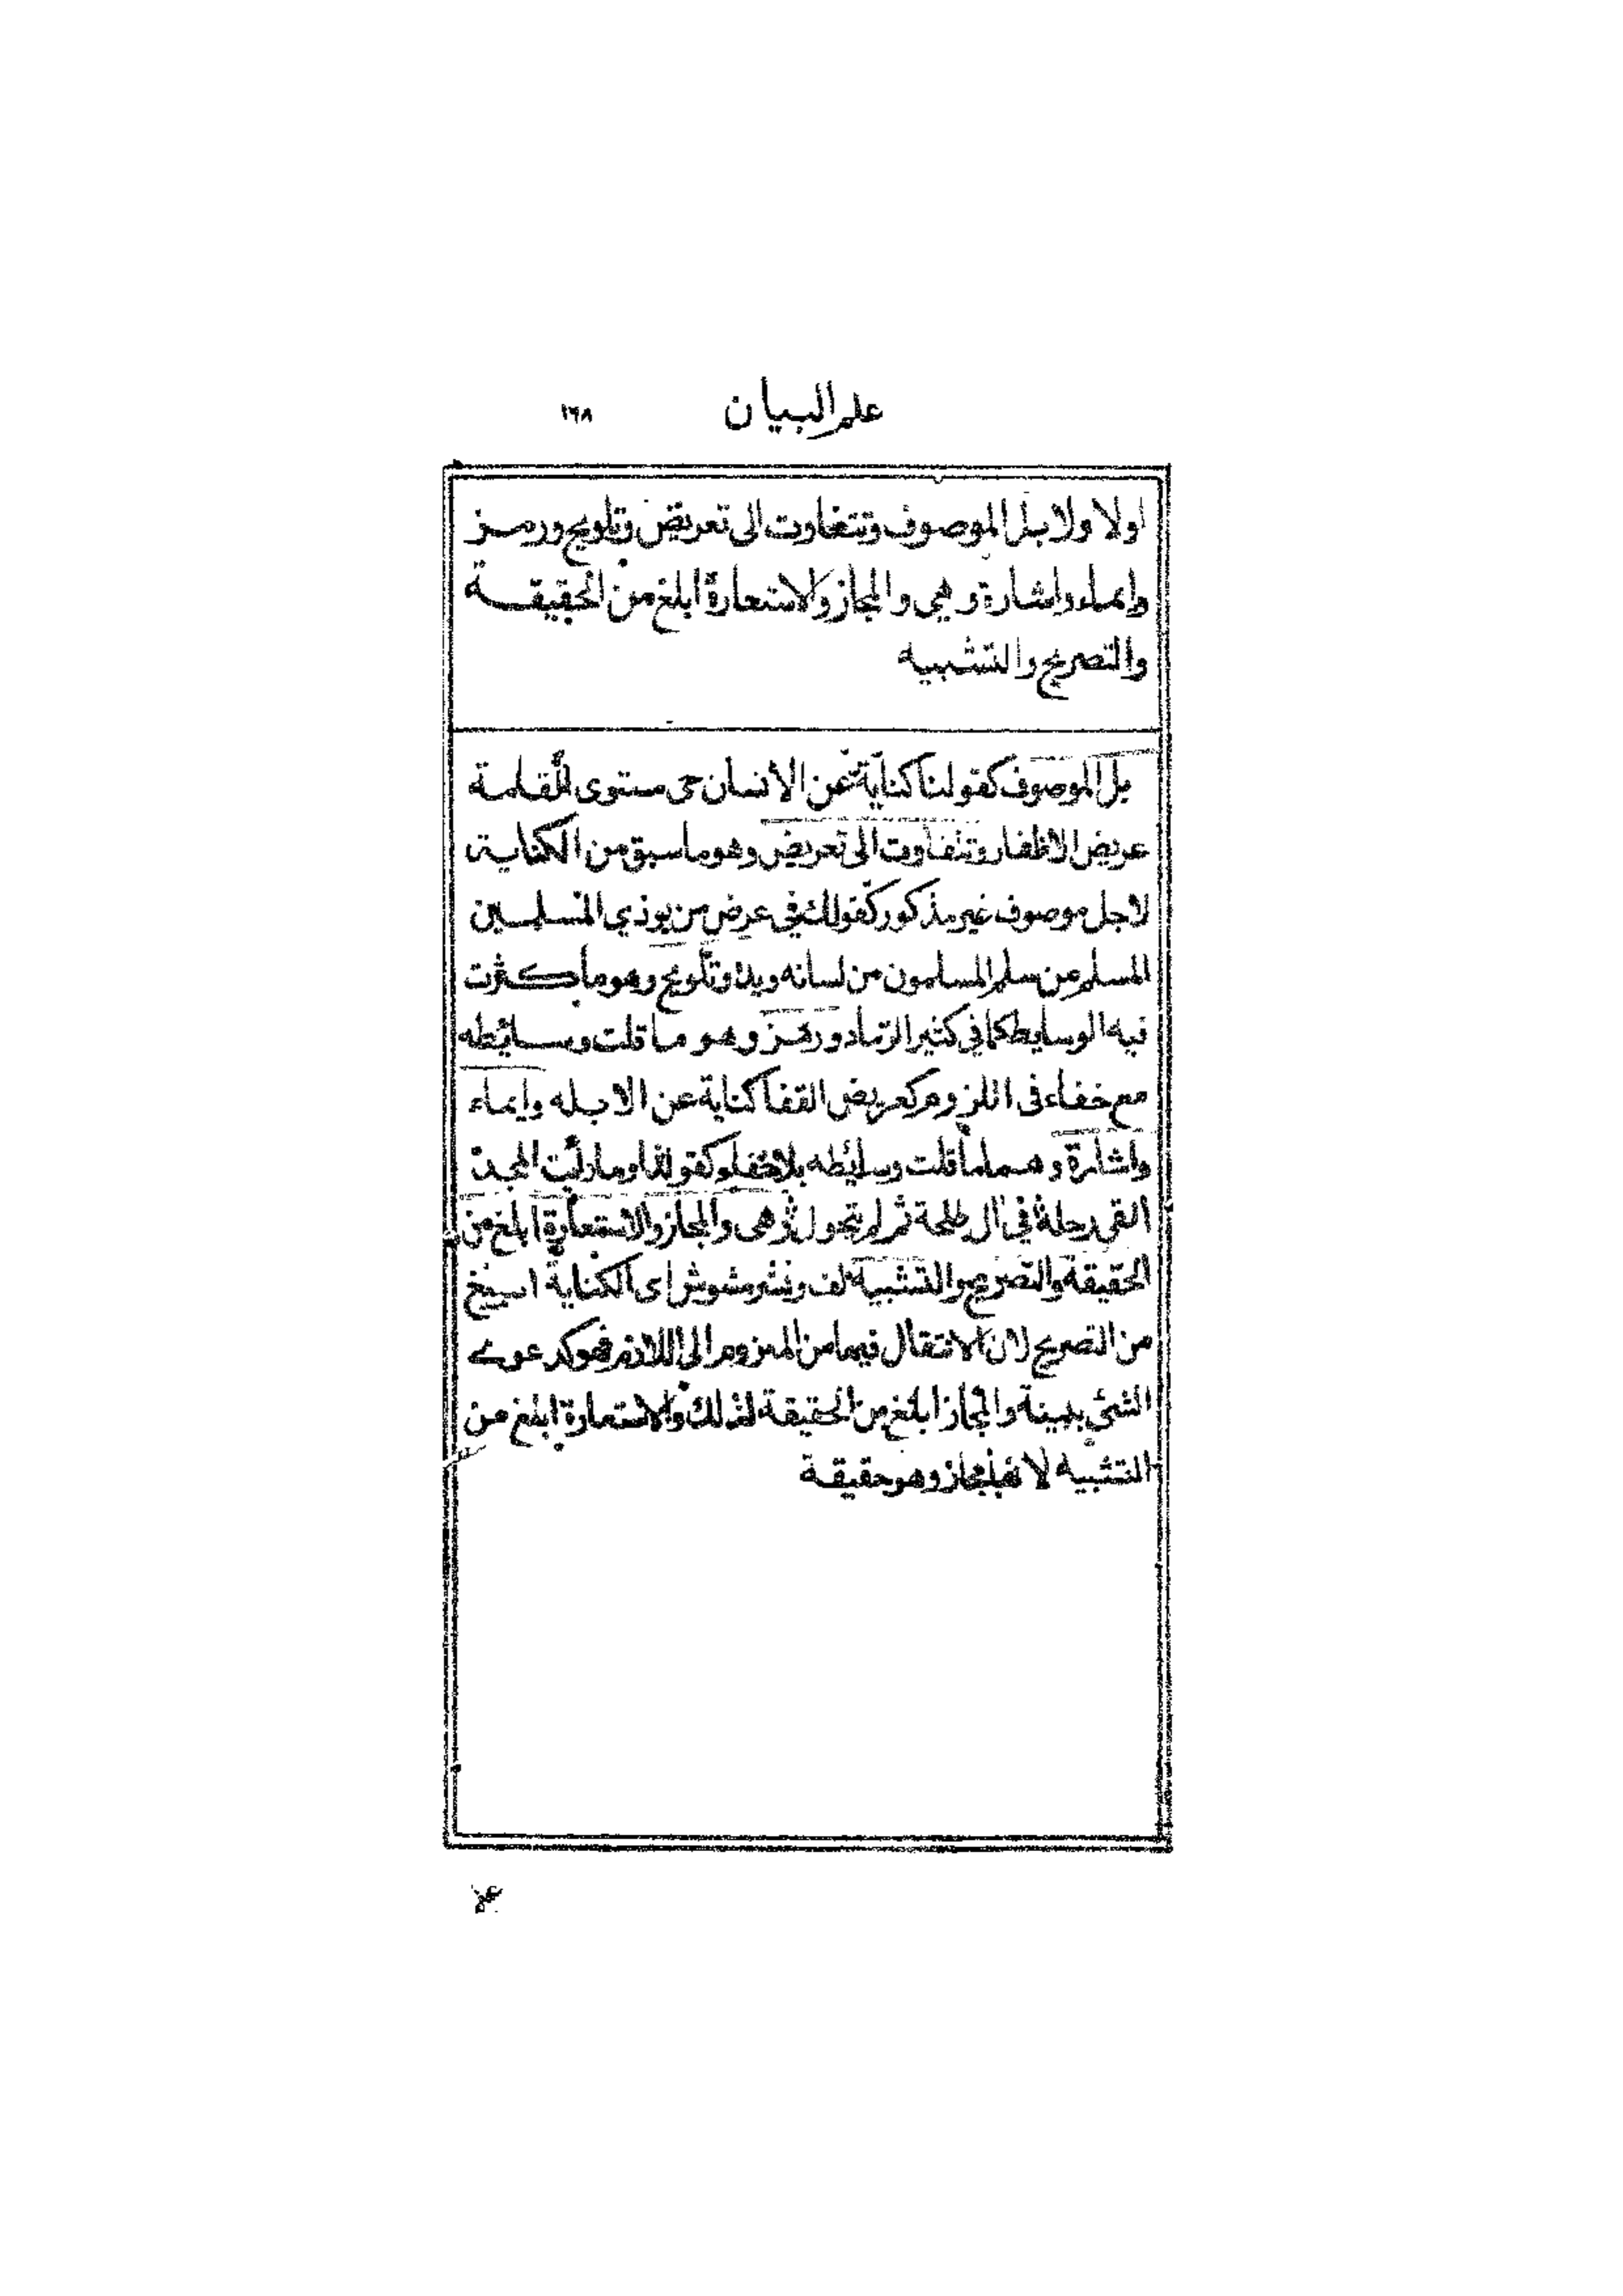 علم البيان ١٦٨
اولا ولا بل الموصوف وتتفاوت الى تعريض وتلويح ورمز
وايماء واشارة وهي والمجاز والاستعارة ابلغ من الحقيقة
والتصريح والتشبيه
بل الموصوف كقولنا كناية عن الانسان حى مستوى القامة
عريض الاظفار وتتفاوت الى تعريض وهو ما سبق من الكناية
لاجل موصوف غير مذكور كقولك في عرض من يوذي المسلمين
المسلم من سلم المسلمون من لسانه ويده وتلويح وهو ما كثرت
فيه الوسايط كما في كثير الرماد ورمز وهو ما قلت وسائطه
مع خفاء فى اللزوم كعريض القفا كناية عن الابله وايماء
واشارة وهما ما قلت وسائطه بلا خفاء كقوله اوما رأيت المجد
القى رحله في ال طلحة ثم لم يتحول وهى والمجاز والاستعارة ابلغ من
الحقيقة والتصريح والتشبيه لف ونشر مشوش اى الكناية ابلغ
من التصريح لان الانتقال فيها من الملزوم الى اللازم فهو كدعوے
الشئ ببينة والمجاز ابلغ من الحقيقة لذلك والاستعارة ابلغ من
التشبيه لانها مجاز وهو حقيقة